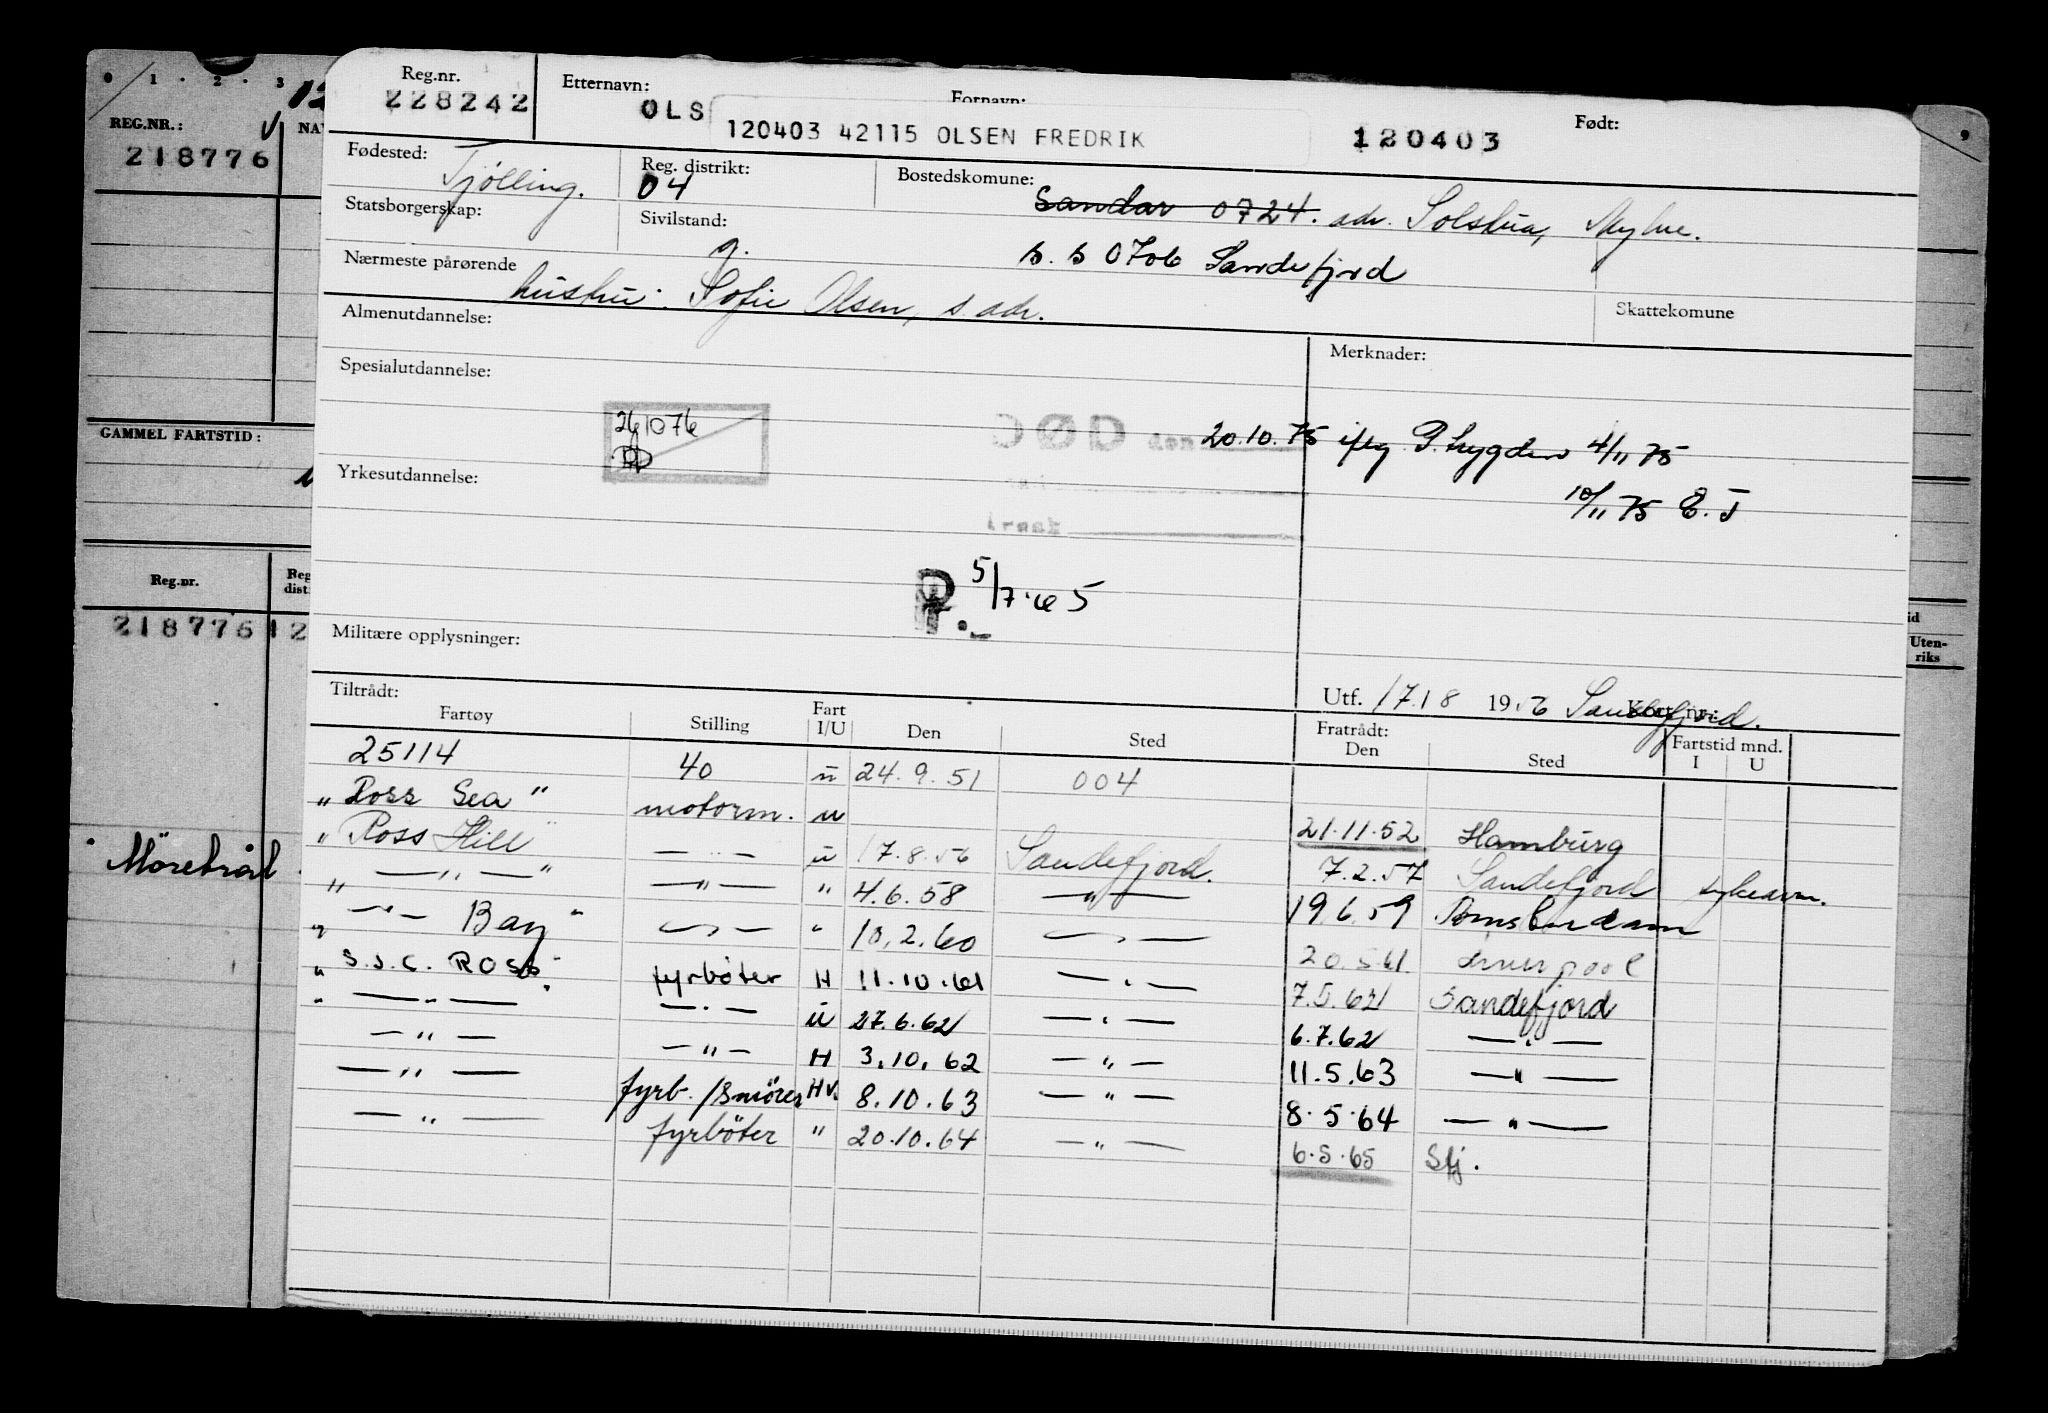 0 · 1 · 2 · 3
9
REG.NR.:
218776
GAMMEL FARTSTID:
Reg.nr.
218776
Uten-
riks
Reg.nr. Etternavn: Fornavn: Født:
228242 OLS 120403 42115 OLSEN FREDRIK 120403
Fødested: Tjølling. Reg. distrikt: 04 Bostedskomune: Sandar 0724. adr. Solstua,
Statsborgerskap: Sivilstand: g. 0706 Sandefjord
Nærmeste pårørende hustru: Sofie Olsen, s. adr. Skattekomune
Almenutdannelse: Merknader:
Spesialutdannelse:
261076 DØD den 20.10.75 iflg. 4/11 75
Yrkesutdannelse: 10/11 75 E.J
Årsak
5/7.65
Militære opplysninger:
Utf. 17.8 1956 Sandefjord.
Tiltrådt: Kort nr.:
Fartøy Stilling Fart I/U Den Sted Fratrådt: Den Sted Fartstid mnd. I U
25114 40 u 24.9.51 004
" Ross Sea " motorm. u 21.11.52 Hamburg
" Ross Hill " — " — u 17.8.56 Sandefjord. 7.2.57 Sandefjord sykeavm.
" — " — " — " — " 4.6.58 — " — 19.6.59 Amsterdam
" — " — Bay " — " — " 10.2.60 — " — 20.5.61. Liverpool
" S.S.C. ROSS " fyrbøter H 11.10.61 — " — 7.5.62 Sandefjord
" — " — — " — u 27.6.62 — " — 6.7.62 — " —
— " — — " — H 3.10.62 — " — 11.5.63 — " —
— " — fyrb./smörer Hv. 8.10.63 — " — 8.5.64 — " —
— " — fyrböter " 20.10.64 — " — 6.5.65 Sfj.